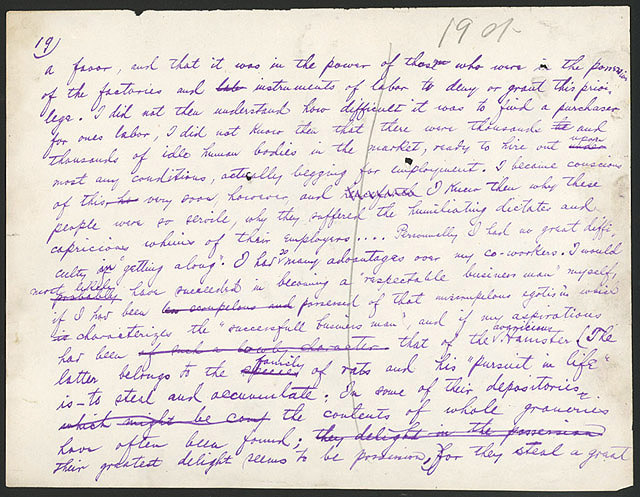 19 or
19)
a favor, and that it was in the power of those who were in the possession
of the factories and lab instruments of labor to deny or grant this privi-
lege. I did not then understand how difficult it was to find a purchaser
for ones labor, I did not know then that there were thousands and
thousands of idle human bodies in the market, ready to hire out upon
most any conditions, actually begging for employment. I became conscious
of this very soon, however, and I knew then why these
people were so servile, why they suffered the humiliating dictates and
capricious whims of their employers.... Personally I had no great diffi-
culty in "getting along". I had so many advantages over my co-workers. I would
most likely probably have succeeded in becoming a respectable business man myself,
if I had been possessed of that unscrupulous egotism which
characterizes the "successfull business man", and if my aspirations
had been if such a lowly character that of the avaricious Hamster (The
latter belongs to the species family of rats and his "pursuit in life"
is – to steal and accumulate. In some of their depositories
which might be the contents of whole graneries
have often been found; they delight in the possession
their greatest delight seems to be possession, for they steal a great